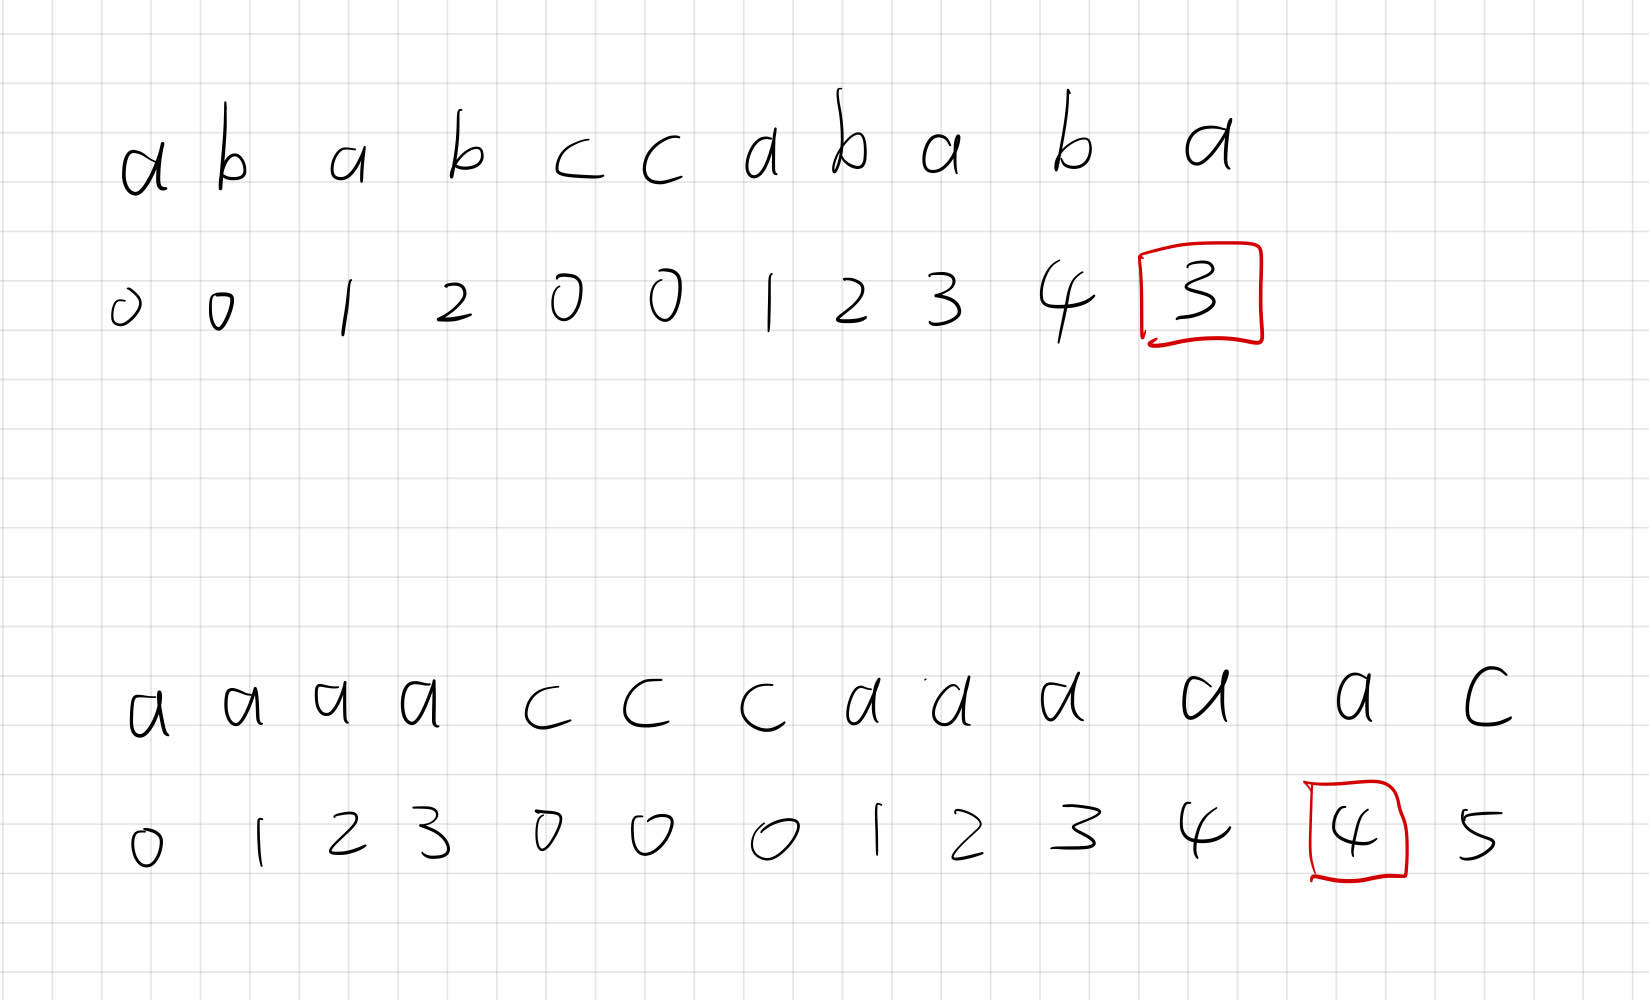 a b a b c c a b a b a
0 0 1 2 0 0 1 2 3 4 3
a a a a c c c a a a a a c
0 1 2 3 0 0 0 1 2 3 4 4 5